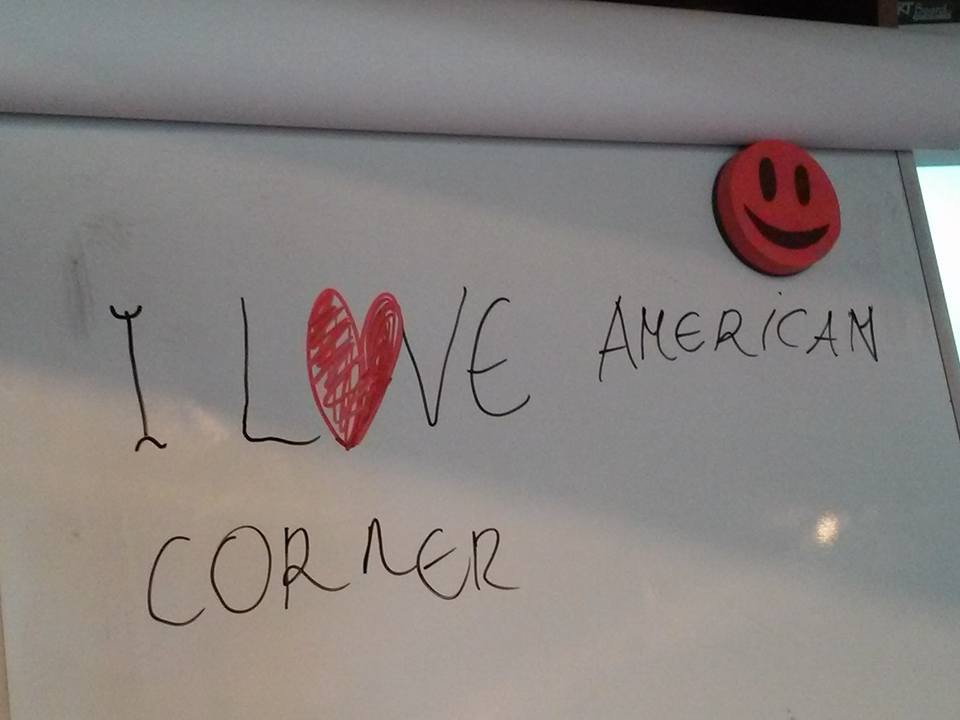 I LOVE AMERICAN
CORNER